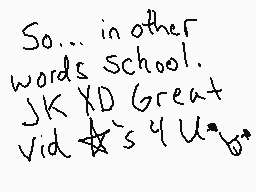 So... in other
words school.
JK XD Great
vid ☆'s 4 U